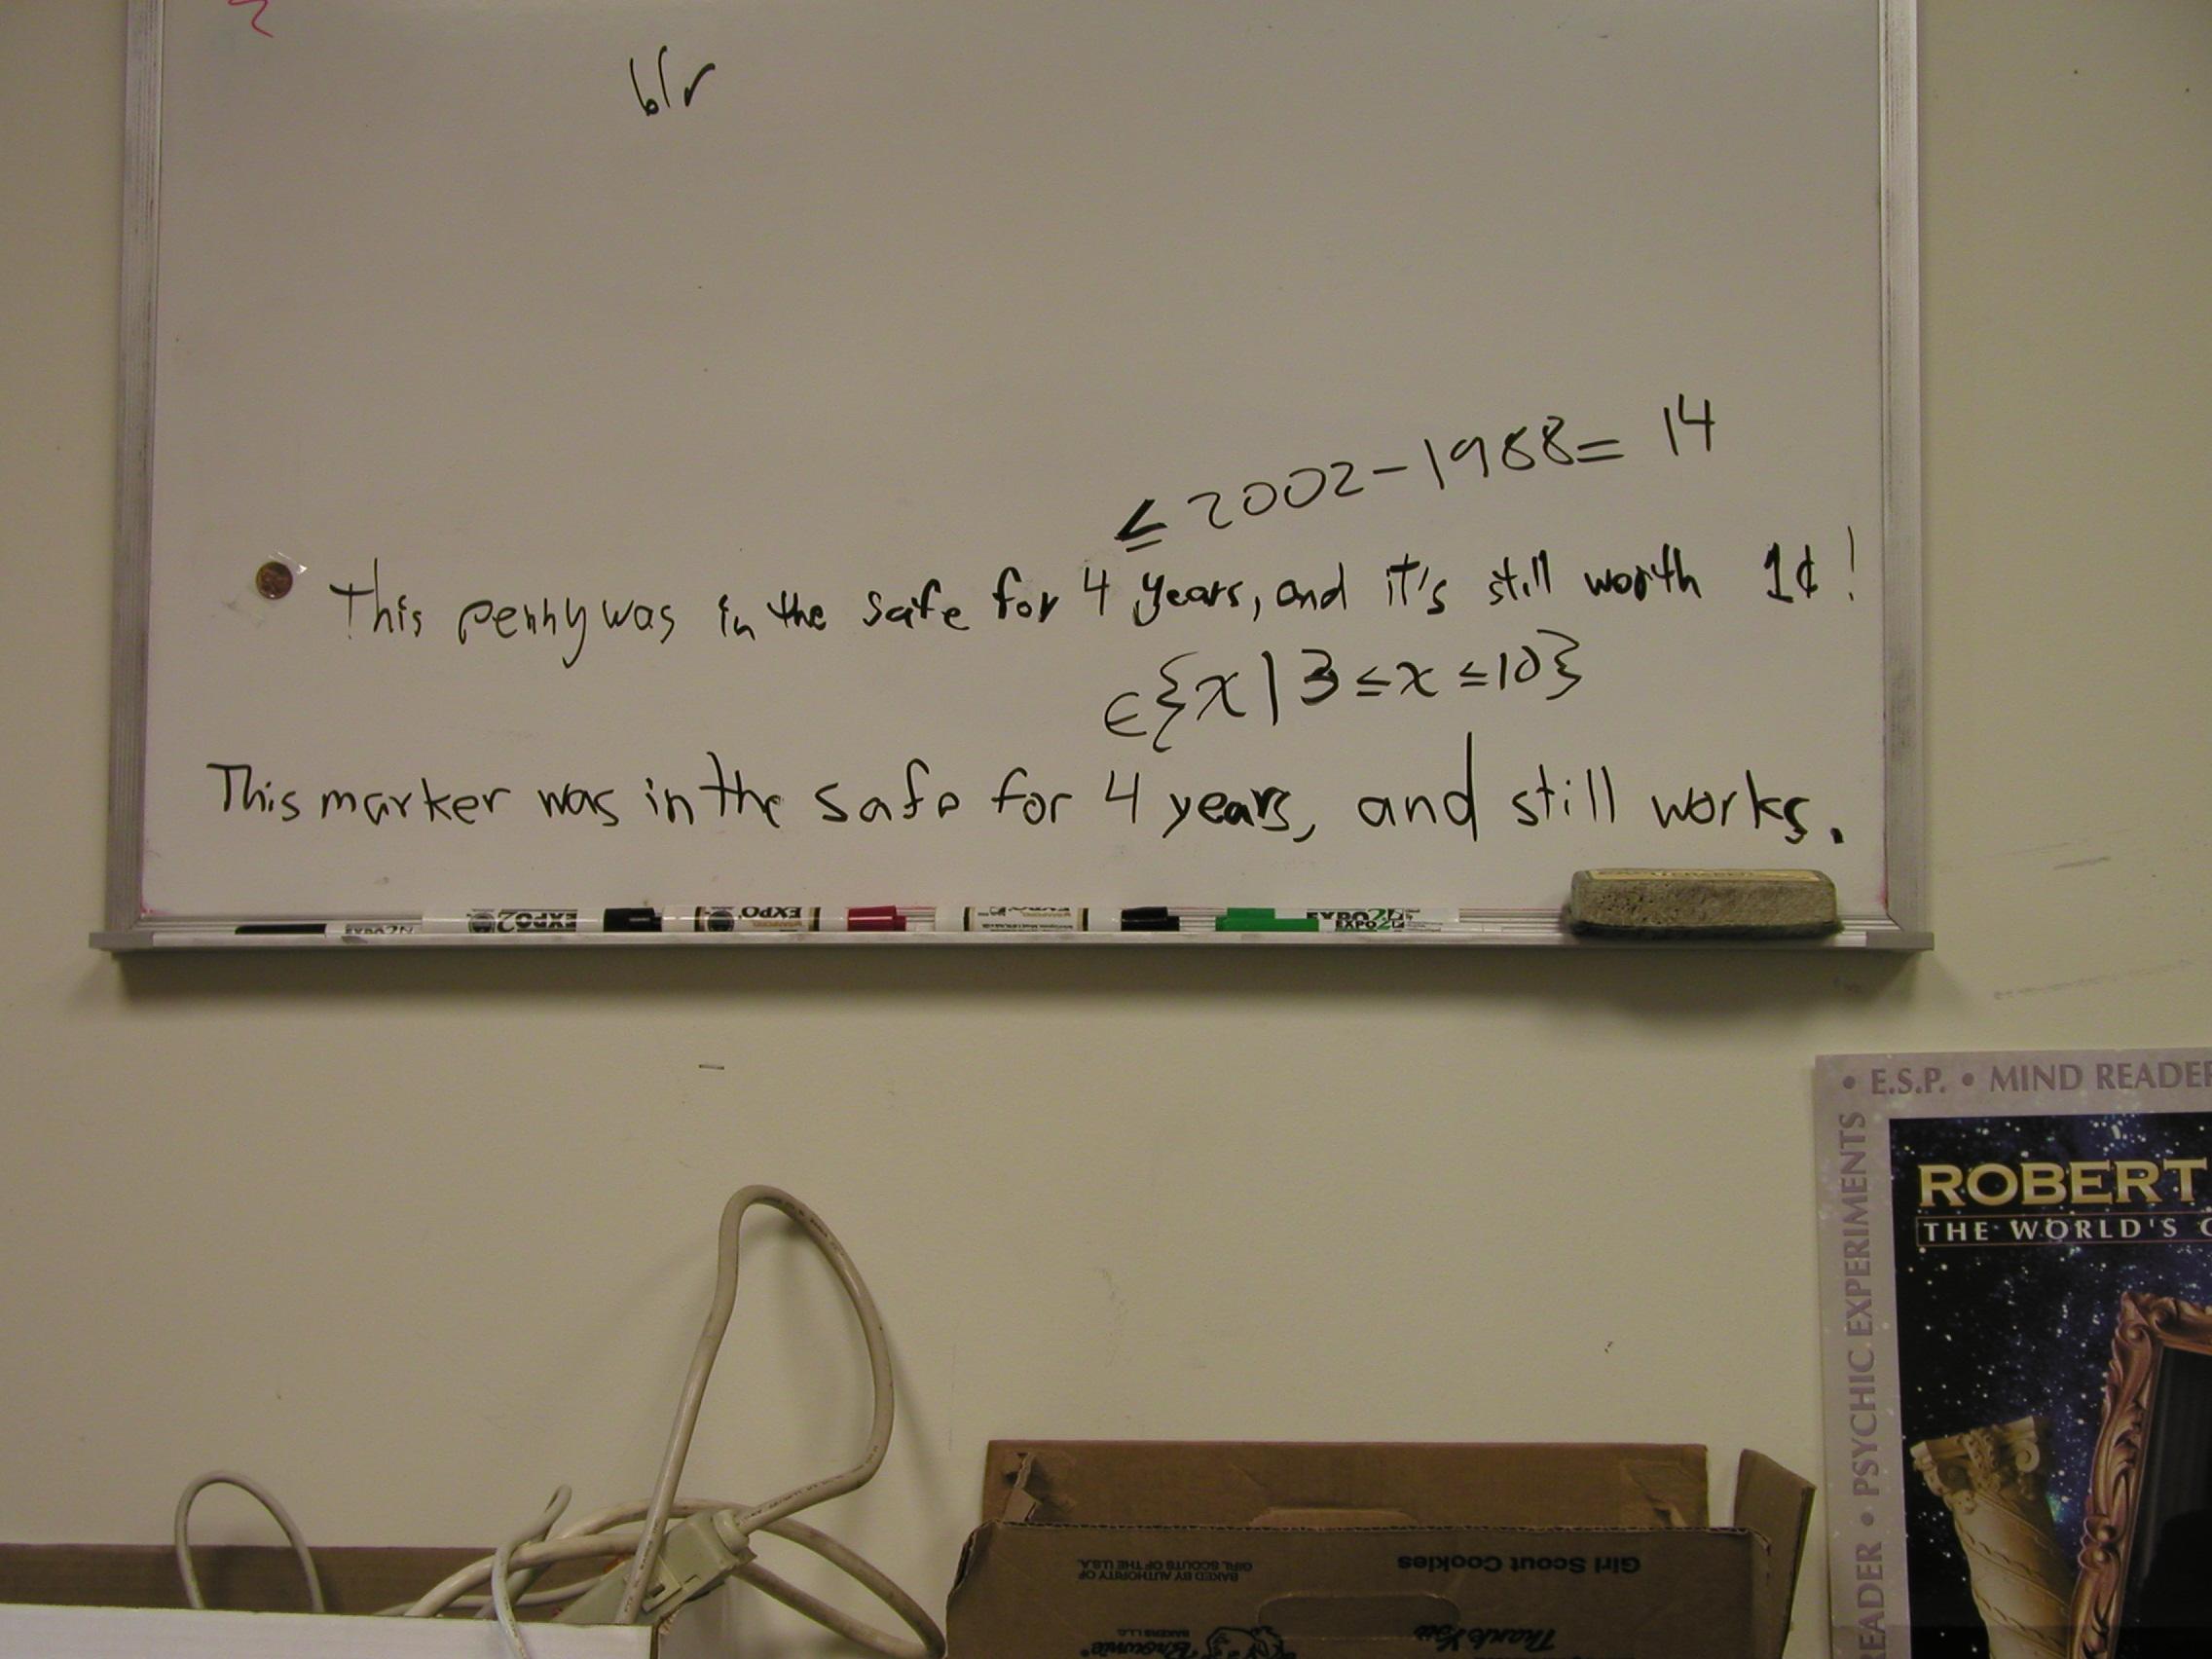 b/r
≤ 2002-1988= 14
This penny was in the safe for 4 years, and it's still worth 1¢!
∈{x|3≤x≤10}
This marker was in the safe for 4 years, and still works.
EXPO2
EXPO2
EXPO
EXPO
EXPO2
EXPO2
• E.S.P. • MIND READER
READER • PSYCHIC EXPERIMENTS
ROBERT
THE WORLD'S
Girl Scout Cookies
BAKED BY AUTHORITY OF
GIRL SCOUTS OF THE U.S.A.
Thank You
Brownie
BAKERS L.L.C.